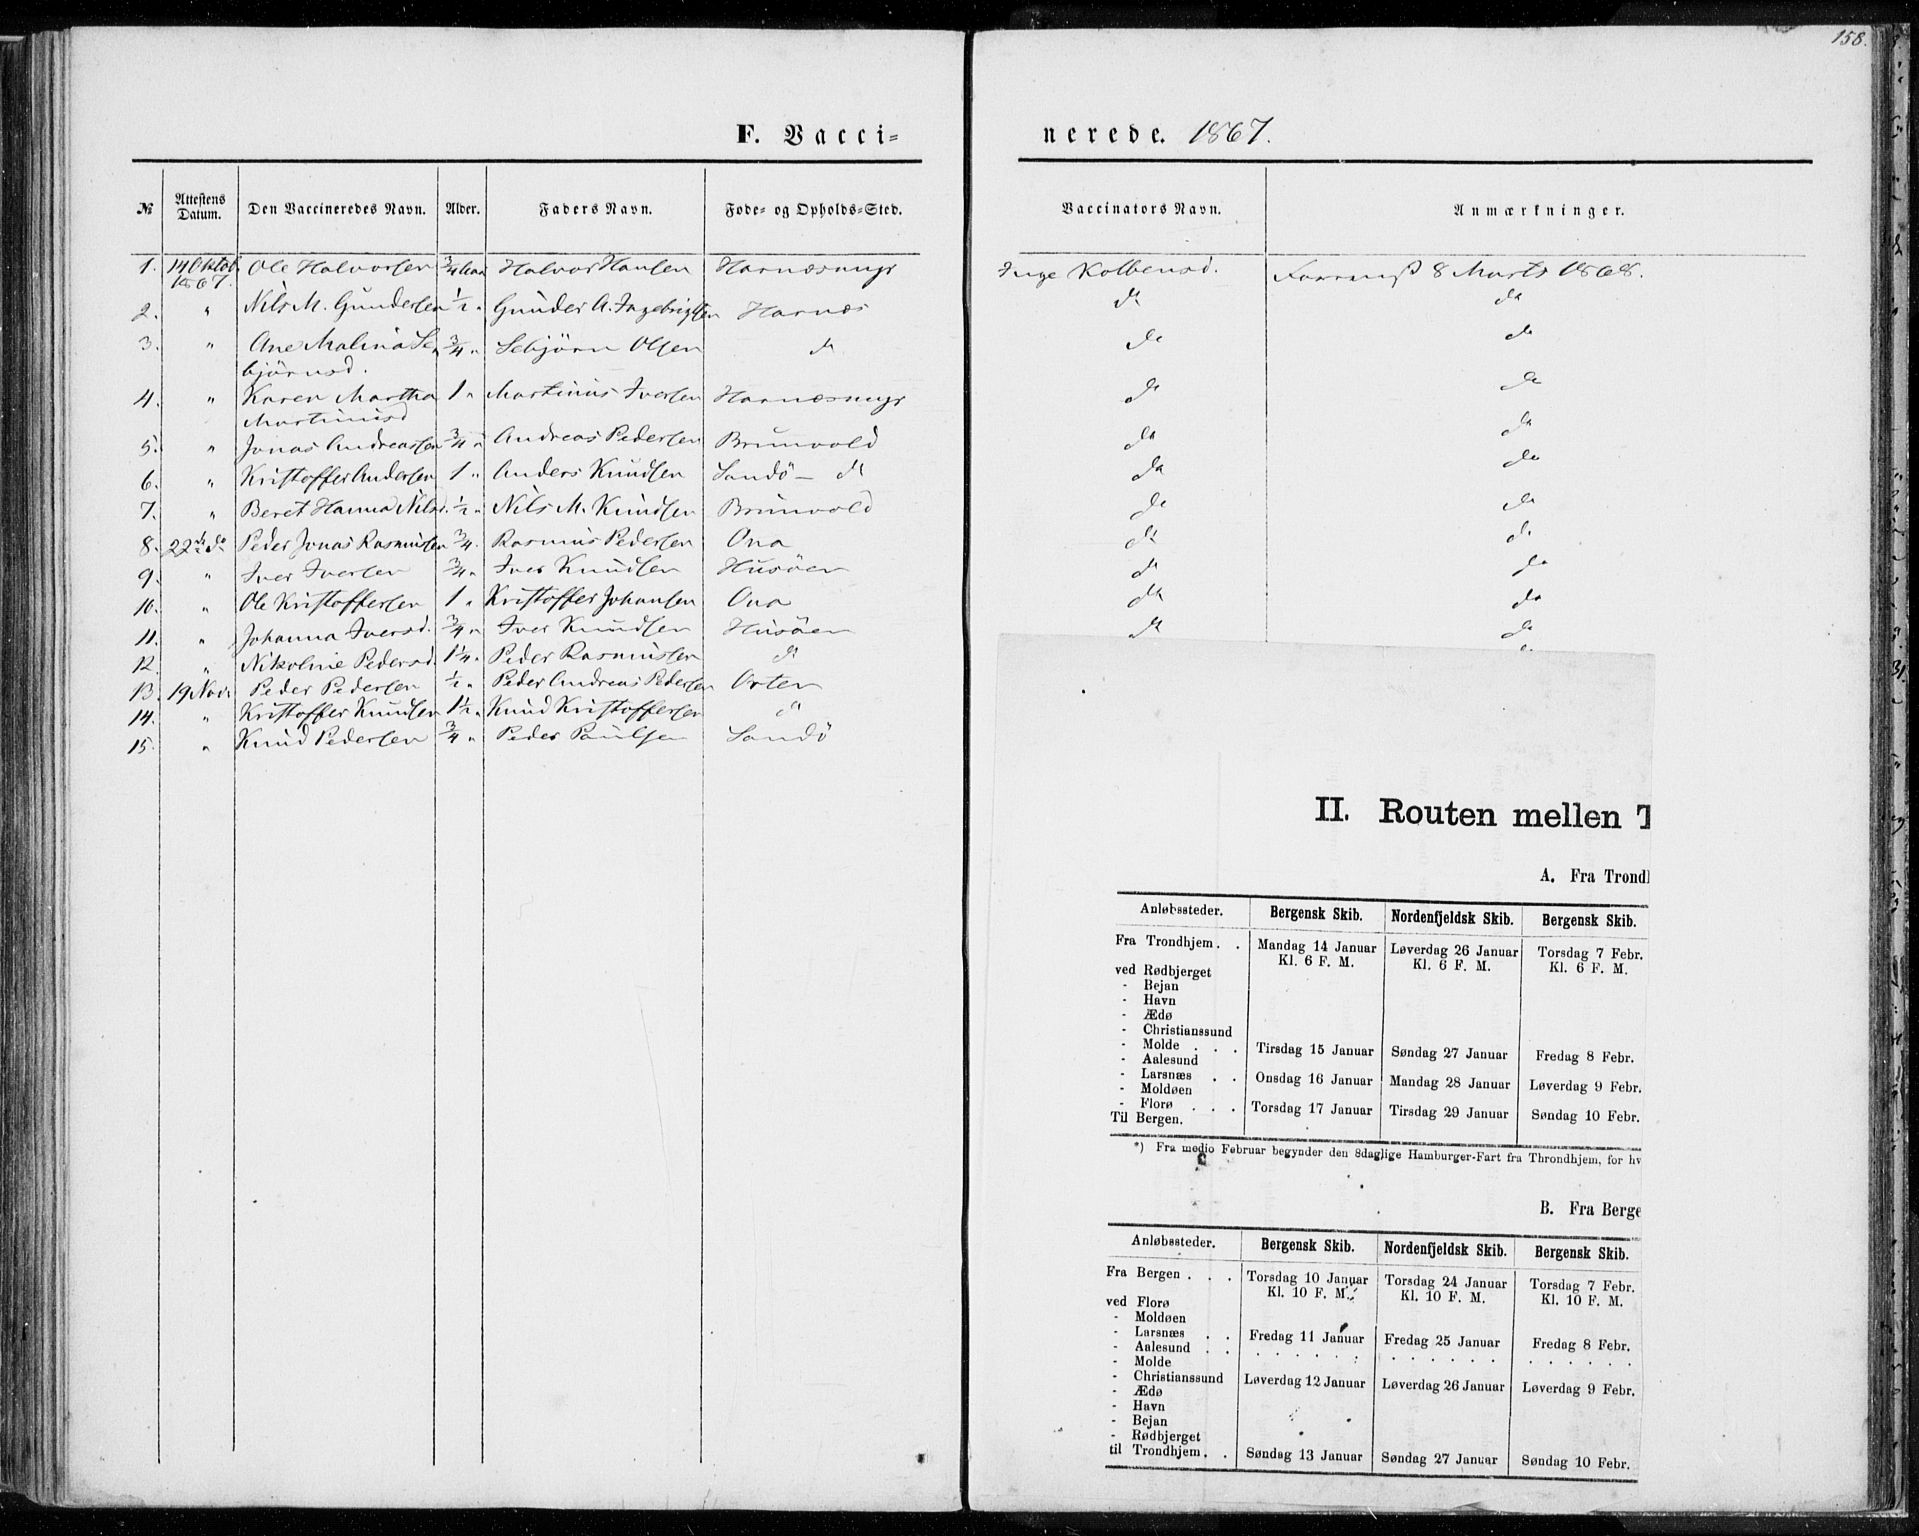 158.
F. Vacci=
nerede. 1867.
№ Attestens Datum. Den Vaccineredes Navn. Alder. Faders Navn. Føde- og Opholds=Sted. Vaccinators Navn. Anmærkninger.
1. 14 Oktob. 1867. Ole Halvorsen 3/4 Halvor Hansen Harnæsmyr Inge Kolbensd. 8 Marts 1868.
2. " Nils M. Gundersen 1/2 " Gunder A. Ingebrigtsen Harnæs do do
3. " Ane Malina Se- 3/4 " Sebjørn Olsen do do do
bjørnsd.
4. " Karen Martha 1 " Martinus Iversen Harnæsmyr do do
Martinusd
5. " Jonas Andreassen 3/4 " Andreas Pedersen Brunvold do do
6. " Kristoffer Andersen 1 " Anders Knudsen Sandö - do do do
7. " Beret Hanna Nilsd. 1/2 " Nils M. Knudsen Brunvold do do
8. 22de do Peder Jonas Rasmussen 3/4 Rasmus Pedersen Ona do do
9. " Iver Iversen 3/4 " Iver Knudsen Husöen do do
10. " Ole Kristoffersen 1 " Kristoffer Johansen Ona do do
11. " Johanna Iversd. 3/4 " Iver Knudsen Husöen do do
12. " Nikoline Pedersd. 1 1/4 " Peder Rasmussen do
13. 19 Nov. Peder Pedersen 1/2 " Peder Andreas Pedersen Orten
14. " Kristoffer Knudsen 1 1/2 " Knud Kristoffersen do
15. " Knud Pedersen 3/4 " Peder Paulsen Sandö
II. Routen mellen T
A. Fra Trondh
Anløbssteder. Bergensk Skib. Nordenfjeldsk Skib. Bergensk Skib.
Fra Trondhjem. . Mandag 14 Januar Løverdag 26 Januar Torsdag 7 Febr.
Kl. 6 F. M. Kl. 6 F. M. Kl. 6 F. M.
ved Rødbjerget
- Bejan
- Havn
- Ædø
- Christianssund
- Molde . . . Tirsdag 15 Januar Søndag 27 Januar Fredag 8 Febr.
- Aalesund
- Larsnæs . . Onsdag 16 Januar Mandag 28 Januar Løverdag 9 Febr.
- Moldøen
- Florø . . . Torsdag 17 Januar Tirsdag 29 Januar Søndag 10 Febr.
Til Bergen.
*) Fra medio Februar begynder den 8daglige Hamburger-Fart fra Throndhjem, for hv
B. Fra Berge
Anløbssteder. Bergensk Skib. Nordenfjeldsk Skib. Bergensk Skib.
Fra Bergen . . . Torsdag 10 Januar Torsdag 24 Januar Torsdag 7 Febr.
Kl. 10 F. M. Kl. 10 F. M. Kl. 10 F. M.
ved Florø
- Moldøen
- Larsnæs . . Fredag 11 Januar Fredag 25 Januar Fredag 8 Febr.
- Aalesund . . . . . . . . . . . . . . . . . . . .
- Molde
- Christianssund Løverdag 12 Januar Løverdag 26 Januar Løverdag 9 Febr.
- Ædø
- Havn
- Bejan
- Rødbjerget
til Trondhjem. . Søndag 13 Januar Søndag 27 Januar Søndag 10 Febr.